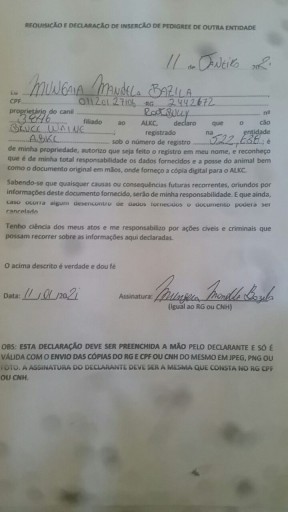 REQUISIÇÃO E DECLARAÇÃO DE INSERÇÃO DE PEDIGREE DE OUTRA ENTIDADE
11 de JANEIRO
Eu MUNGAIA MANDELO BAZILA
CPF RG
proprietário do canil ROOTBULLY nº
3646 filiado ao ALKC, declaro que o cão
BRUCE WAINE, registrado na entidade
ABKC sob o número de registro é
de minha propriedade, autorizo que seja feito o registro em meu nome, e reconheço
que é de minha total responsabilidade os dados fornecidos e a posse do animal bem
como o documento original em mãos, onde forneço a cópia digital para o ALKC.
Sabendo-se que quaisquer causas ou consequências futuras recorrentes, oriundos por
informações deste documento fornecido, serão de minha responsabilidade. E que ainda,
caso ocorra algum desencontro de dados fornecidos o documento poderá ser
cancelado.
Tenho ciência dos meus atos e me responsabilizo por ações cíveis e criminais que
possam recorrer sobre as informações aqui declaradas.
O acima descrito é verdade e dou fé
Data: Assinatura:
(Igual ao RG ou CNH)
OBS: ESTA DECLARAÇÃO DEVE SER PREENCHIDA A MÃO PELO DECLARANTE E SÓ É
VÁLIDA COM O ENVIO DAS CÓPIAS DO RG E CPF OU CNH DO MESMO EM JPEG, PNG OU
FOTO. A ASSINATURA DO DECLARANTE DEVE SER A MESMA QUE CONSTA NO RG CPF
OU CNH.